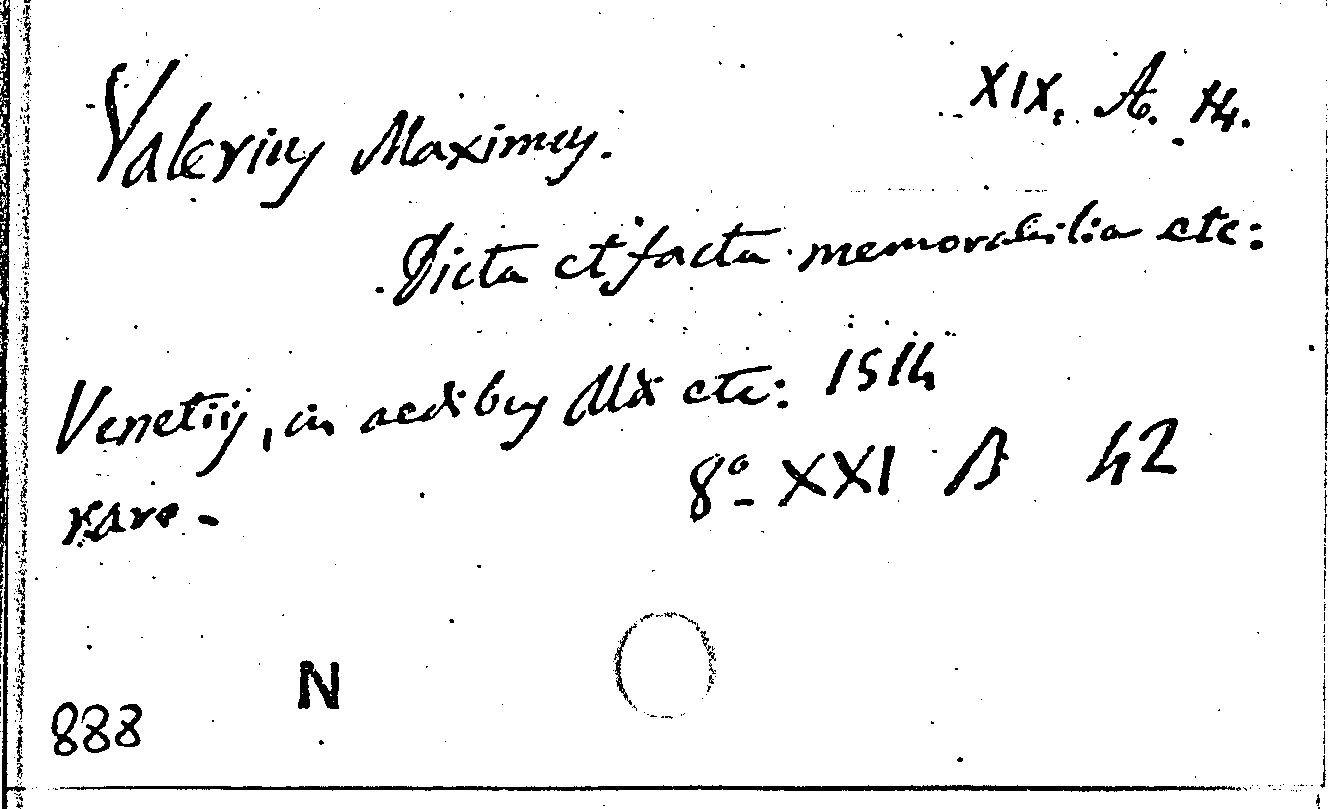 Valerius Maximus. XIX. A. 14.
Dicta et facta memorabilia etc:
Venetiis, in aedibus Aldi etc: 1514
rare -
8° XXI B 42
N
888